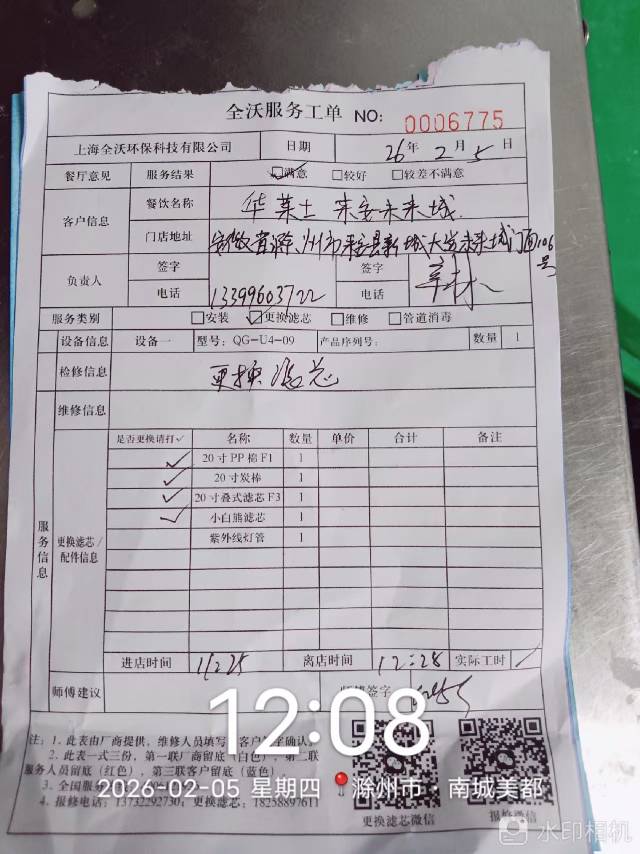 全沃服务工单 NO: 0006775
上海全沃环保科技有限公司 日期 26年 2月 5日
餐厅意见 服务结果 ☑满意 □较好 □较差不满意
客户信息 餐饮名称 华莱士 来安未来城
门店地址 安徽省滁州市来安县新城大发未来城门面106号
负责人 签字 签字
电话 13399603722 电话
服务类别 □安装 ☑更换滤芯 □维修 □管道消毒
设备信息 设备一 型号: QG-U4-09 产品序列号: 数量 1
检修信息 更换滤芯
维修信息
服务信息 更换滤芯/配件信息
是否更换请打✓ 名称 数量 单价 合计 备注
✓ 20寸PP棉F1 1
✓ 20寸炭棒 1
✓ 20寸叠式滤芯F3 1
✓ 小白熊滤芯 1
紫外线灯管 1
进店时间 离店时间 12:28 实际工时
师傅建议 签字
12:08
注: 1. 此表由厂商提供, 维修人员填写, 客户签字确认。
2. 此表一式三份, 第一联厂商留底(白色), 第二联
服务人员留底(红色), 第三联客户留底(蓝色)
3. 全国服务
2026-02-05 星期四 滁州市·南城美都
4. 报修电话: 13732292730; 更换滤芯: 18258897611
更换滤芯微信 报修微信
水印相机